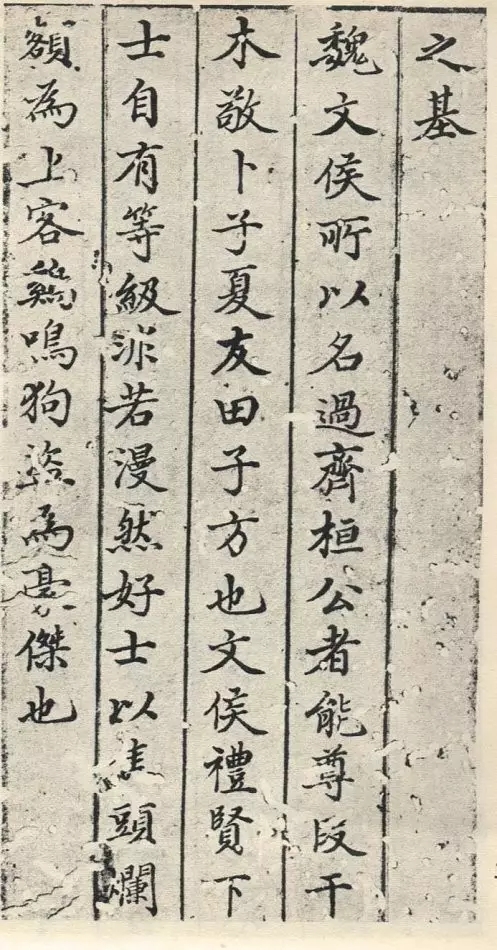 之基
魏文侯所以名過齊桓公者能尊段干
木敬卜子夏友田子方也文侯禮賢下
士自有等級非若漫然好士以焦頭爛
額為上客鷄鳴狗盜為豪傑也